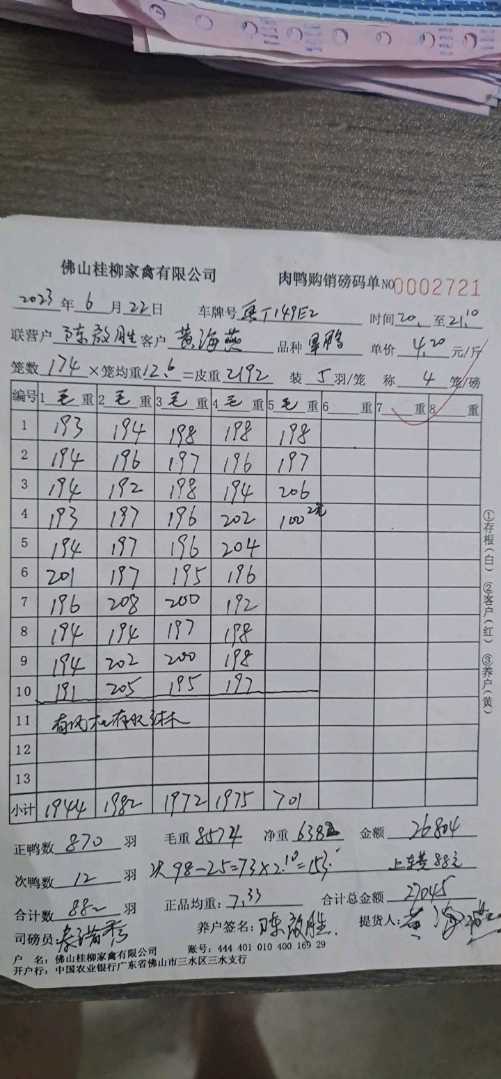 佛山桂柳家禽有限公司 肉鸭购销磅码单 NO 0002721
2023年6月22日 车牌号 粤T149E2 时间20. 至21.10
联营户 陈啟胜 客户 黄海燕 品种 单价 4.20 元/斤
笼数 174 ×笼均重 12.6 =皮重 2192 装 5 羽/笼 称 4 笼/磅
编号 1 毛 重 2 毛 重 3 毛 重 4 毛 重 5 毛 重 6 重 7 重 8 重
1 193 194 198 198 198
2 194 196 197 196 197
3 194 192 198 194 206
4 193 197 196 202 100
5 194 197 196 204
6 201 197 195 196
7 196 208 200 192
8 194 194 197 198
9 194 202 200 198
10 191 205 195 197
11
12
13
小计 1944 1982 1972 1975 701
正鸭数 870 羽 毛重 8574 净重 6382 金额 26804
次鸭数 12 羽 次 98-25=73×2.10=153. 上车费88元
合计数 882 羽 正品均重: 7.33 合计总金额 27045
司磅员: 养户签名: 陈啟胜 提货人: 黄海燕
户 名: 佛山桂柳家禽有限公司 账号: 444 401 010 400 169 29
开户行: 中国农业银行广东省佛山市三水区三水支行
①存根(白) ②客户(红) ③养户(黄)